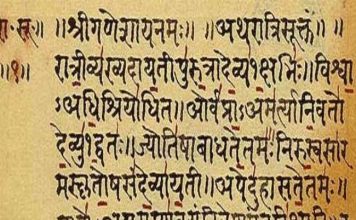 ॥श्रीगणेशायनमः॥ ॥अथरात्रिसूक्तं॥
॥१॥ रात्रीव्यख्यदायतीपुरुत्रादेव्य१क्षभिः॥विश्वा
ऽअधिश्रियोधित॥ओर्वप्राऽअमर्त्यानिवतो
देव्यु१द्वतः॥ज्योतिषाबाधतेतमः॥निरुस्वसार
मस्कृतोषसंदेव्यायती॥अपेदुहासतेतमः॥